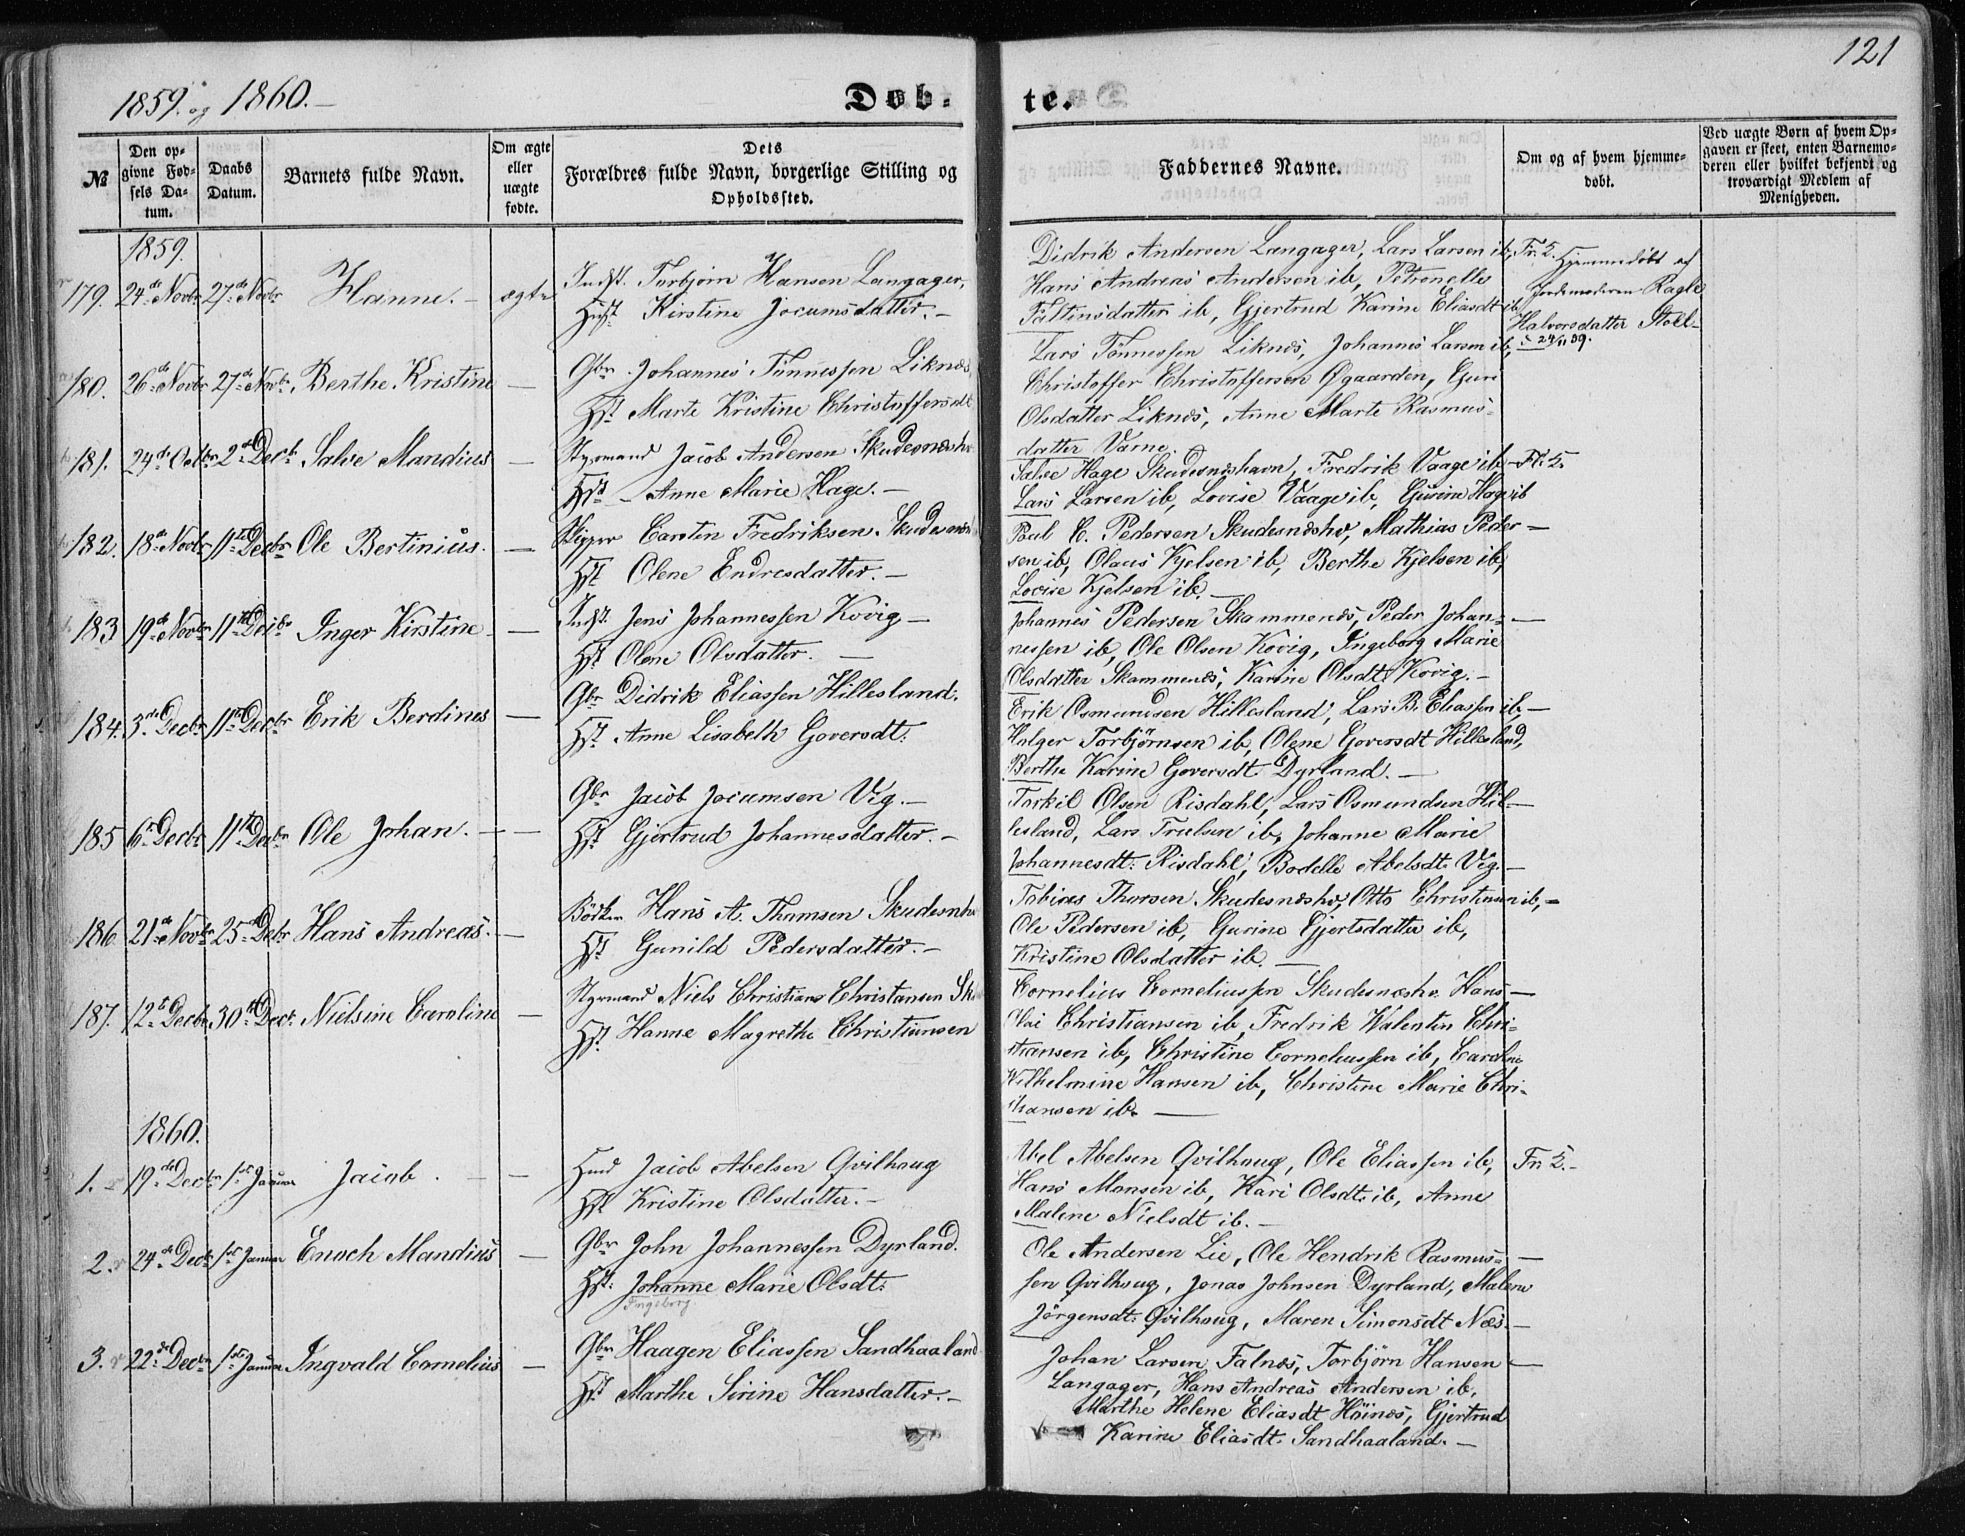 121
1859. og 1860.—
Døb- te.
№
Den op-
givne Fød-
sels Da-
tum.
Daabs
Datum.
Barnets fulde Navn.
Om ægte
eller
uægte
fødte.
Dets
Forældres fulde Navn, borgerlige Stilling og
Opholdssted.
Faddernes Navne.
Om og af hvem hjemme-
døbt.
Ved uægte Børn af hvem Op-
gaven er skeet, enten Barnemo-
deren eller hvilket bekjendt og
troværdigt Medlem af
Menigheden.
1859.
179. 24de Novbr 27de Novbr Hanne. — ægte
Indst. Torbjørn Hansen Langager,
Hust. Kirstine Jocumsdatter. —
Didrik Andersen Langager, Lars Larsen ib,
Hans Andreas Andersen ib, Petronelle
Faltinsdatter ib, Gjertrud Karine Eliasdt ib,
Hjemmedøbt af
Jordemoderen Ragle
Halvorsdatter Stoll-
24/11 59.
180. 26de Novbr 27de Novbr. Berthe Kristine —
Gbr. Johannes Tönnessen Liknæs,
Hst. Marte Kristine Christoffersdt
Lars Tönnessen Liknæs, Johannes Larsen ib,
Christoffer Christoffersen Øgaarden, Guri
Olsdatter Liknæs, Anne Marte Rasmus-
datter Varne.
181. 24de Octbr 2de Decbr Salve Mandius —
Styrmand Jacob Andersen Skudesnæshv
Hst. Anne Marie Hage. —
Salve Hage Skudesnæshavn, Fredrik Vaage ib,
Lars Larsen ib, Lovise Vaage ib, Gurine Hage ib
182. 18de Novbr 11te Decbr Ole Bertinius. —
Skipper Carsten Fredriksen. Skudesnæs
Hst. Olene Endresdatter. —
Poul C. Pedersen Skudesnæshv, Mathias Peder-
sen ib, Olaus Kjelsen ib, Berthe Kjelsen ib,
Lovise Kjelsen ib. —
183 19de Novbr 11te Decbr Inger Kirstine —
Indst. Jens Johannessen Kovig —
Hst Olene Olsdatter. —
Johannes Pedersen Skammenæs, Peder Johan- —
nessen ib, Ole Olsen Kovig, Ingeborg Marie
Olsdatter Skammenæs, Karine Olsdt. Kovig. —
184. 3de Decbr 11te Decbr Erik Berdines —
Gbr Didrik Eliassen Hillesland.
Hst. Anne Lisabeth Goversdt.
Erik Osmundsen Hillesland, Lars B. Eliassen ib, —
Holger Torbjörnsen ib, Olene Goversdt Hillesland,
Berthe Karine Goversdt. Dyrland. —
185 6te Decbr 11te Decbr Ole Johan. — —
Gbr Jacob Jocumsen Vig. —
Hst. Gjertrud Johannesdatter. —
Torkil Olsen Risdahl, Lars Osmundsen Hil- —
lesland, Lars Trulsen ib, Johanne Marie
Johannesdt. Risdahl, Bodelle Abelsdt. Vig. —
186 21de Novbr 25de Decbr Hans Andreas. —
Bödker Hans A. Thomsen Skudesnhv
Hst. Gunild Pedersdatter. —
Tobias Thorsen Skudesnæshv, Otto Christensen ib, —
Ole Pedersen ib, Gurine Gjertsdatter ib,
Kristine Olsdatter ib. —
187. 12te Decbr 30te Decbr. Nielsine Caroline —
Styrmand Niels Christians Christiansen Sk
Hst. Hanne Magrethe Christiansen
Cornelius Corneliussen Skudesnæshv. Hans —
Christiansen ib, Fredrik Walentin Chri-
stiansen ib, Christine Corneliussen ib, Caroline
Wilhelmine Hansen ib, Christine Marie Chri-
stiansen ib. —
1860.
1. 19de Decbr 1ste Januar Jacob. — —
Hmd Jacob Abelsen Qvilhaug
Hst. Kristine Olsdatter. —
Abel Abelsen Qvilhaug, Ole Eliassen ib,
Hans Monsen ib, Kari Olsdt. ib, Anne
Malene Nielsdt ib. —
2. 24de Decbr 1ste Januar Enoch Mandius —
Gbr John Johannessen Dyrland.
Hst. Johanne Marie Olsdt.
Ingeborg
Ole Andersen Lie, Ole Hendrik Rasmus- —
sen Qvilhaug, Jonas Johnsen Dyrland, Malene
Jörgensdt. Qvilhaug, Maren Simonsdt Næs. —
3. 22de Decbr 1ste Januar Ingvald Cornelius —
Gbr Haagen Eliassen Sandhaaland
Hst. Marthe Sirine Hansdatter. —
Johan Larsen Falnæs, Torbjörn Hansen —
Langager, Hans Andreas Andersen ib,
Marthe Helene Eliasdt Höinæs, Gjertrud
Karine Eliasdt. Sandhaaland. —